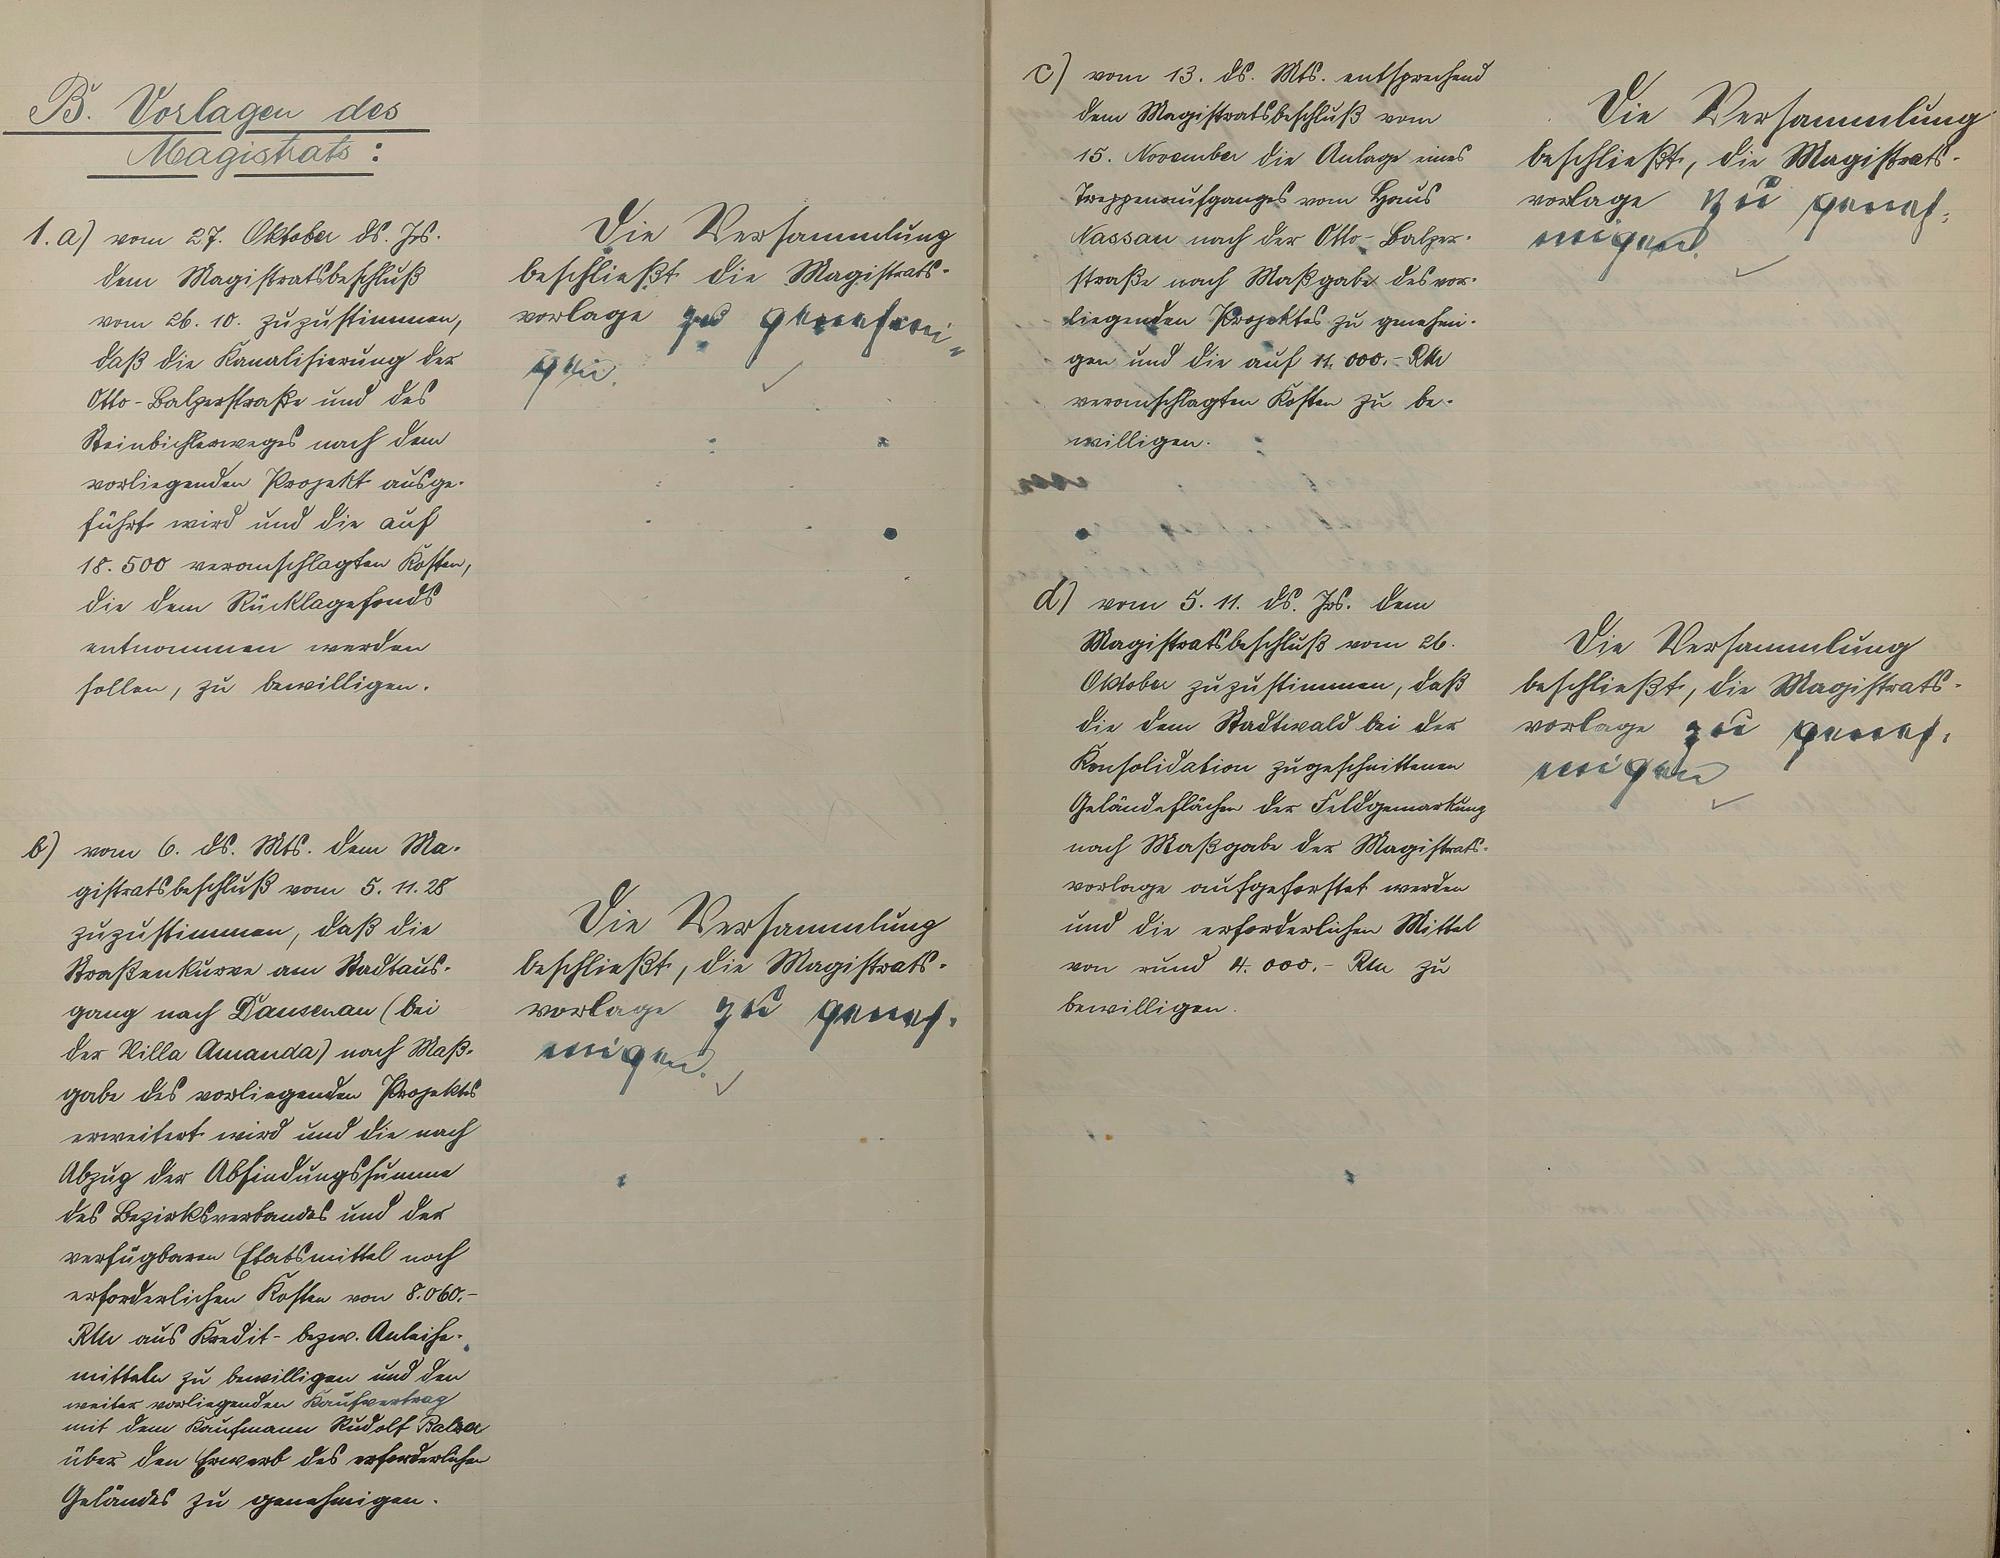 B. Vorlagen des
Magistrats:
1. a) vom 27. Oktober ds. Js.
dem Magistratsbeschluß
vom 26. 10. zuzustimmen,
daß die Kanalisierung der
Otto-Balzerstraße und des
Steinbichlerweges nach dem
vorliegenden Projekt ausge-
führt wird und die auf
18.500 veranschlagten Kosten,
die dem Rücklagefonds
entnommen werden
sollen, zu bewilligen.
Die Versammlung
beschließt die Magistrats-
vorlage zu genehmi-
gen.
b) vom 6. ds. Mts. dem Ma-
gistratsbeschluß vom 5.11.28
zuzustimmen, daß die
Straßenkurve am Stadtaus-
gang nach Dausenau (bei
der Villa Amanda) nach Maß-
gabe des vorliegenden Projektes
erweitert wird und die nach
Abzug der Abfindungssumme
des Bezirksverbandes und der
verfügbaren Etatsmittel noch
erforderlichen Kosten von 8.060.-
RM aus Kredit- bezw. Anleihe-
mitteln zu bewilligen und den
weiter vorliegenden Kaufvertrag
mit dem Kaufmann Rudolf Balzer
über den Erwerb des erforderlichen
Geländes zu genehmigen.
Die Versammlung
beschließt, die Magistrats-
vorlage zu geneh-
migen.
c) vom 13. ds. Mts. entsprechend
dem Magistratsbeschluß vom
15. November die Anlage eines
Treppenaufganges vom Haus
Nassau nach der Otto-Balzer-
straße nach Maßgabe des vor-
liegenden Projektes zu genehmi-
gen und die auf 11.000.- RM
veranschlagten Kosten zu be-
willigen.
Die Versammlung
beschließt, die Magistrats-
vorlage zu geneh-
migen.
d) vom 5. 11. ds. Js. dem
Magistratsbeschluß vom 26.
Oktober zuzustimmen, daß
die dem Stadtwald bei der
Konsolidation zugeschnittenen
Geländeflächen der Feldgemarkung
nach Maßgabe der Magistrats-
vorlage aufgeforstet werden
und die erforderlichen Mittel
von rund 4.000.- RM zu
bewilligen.
Die Versammlung
beschließt, die Magistrats-
vorlage zu geneh-
migen